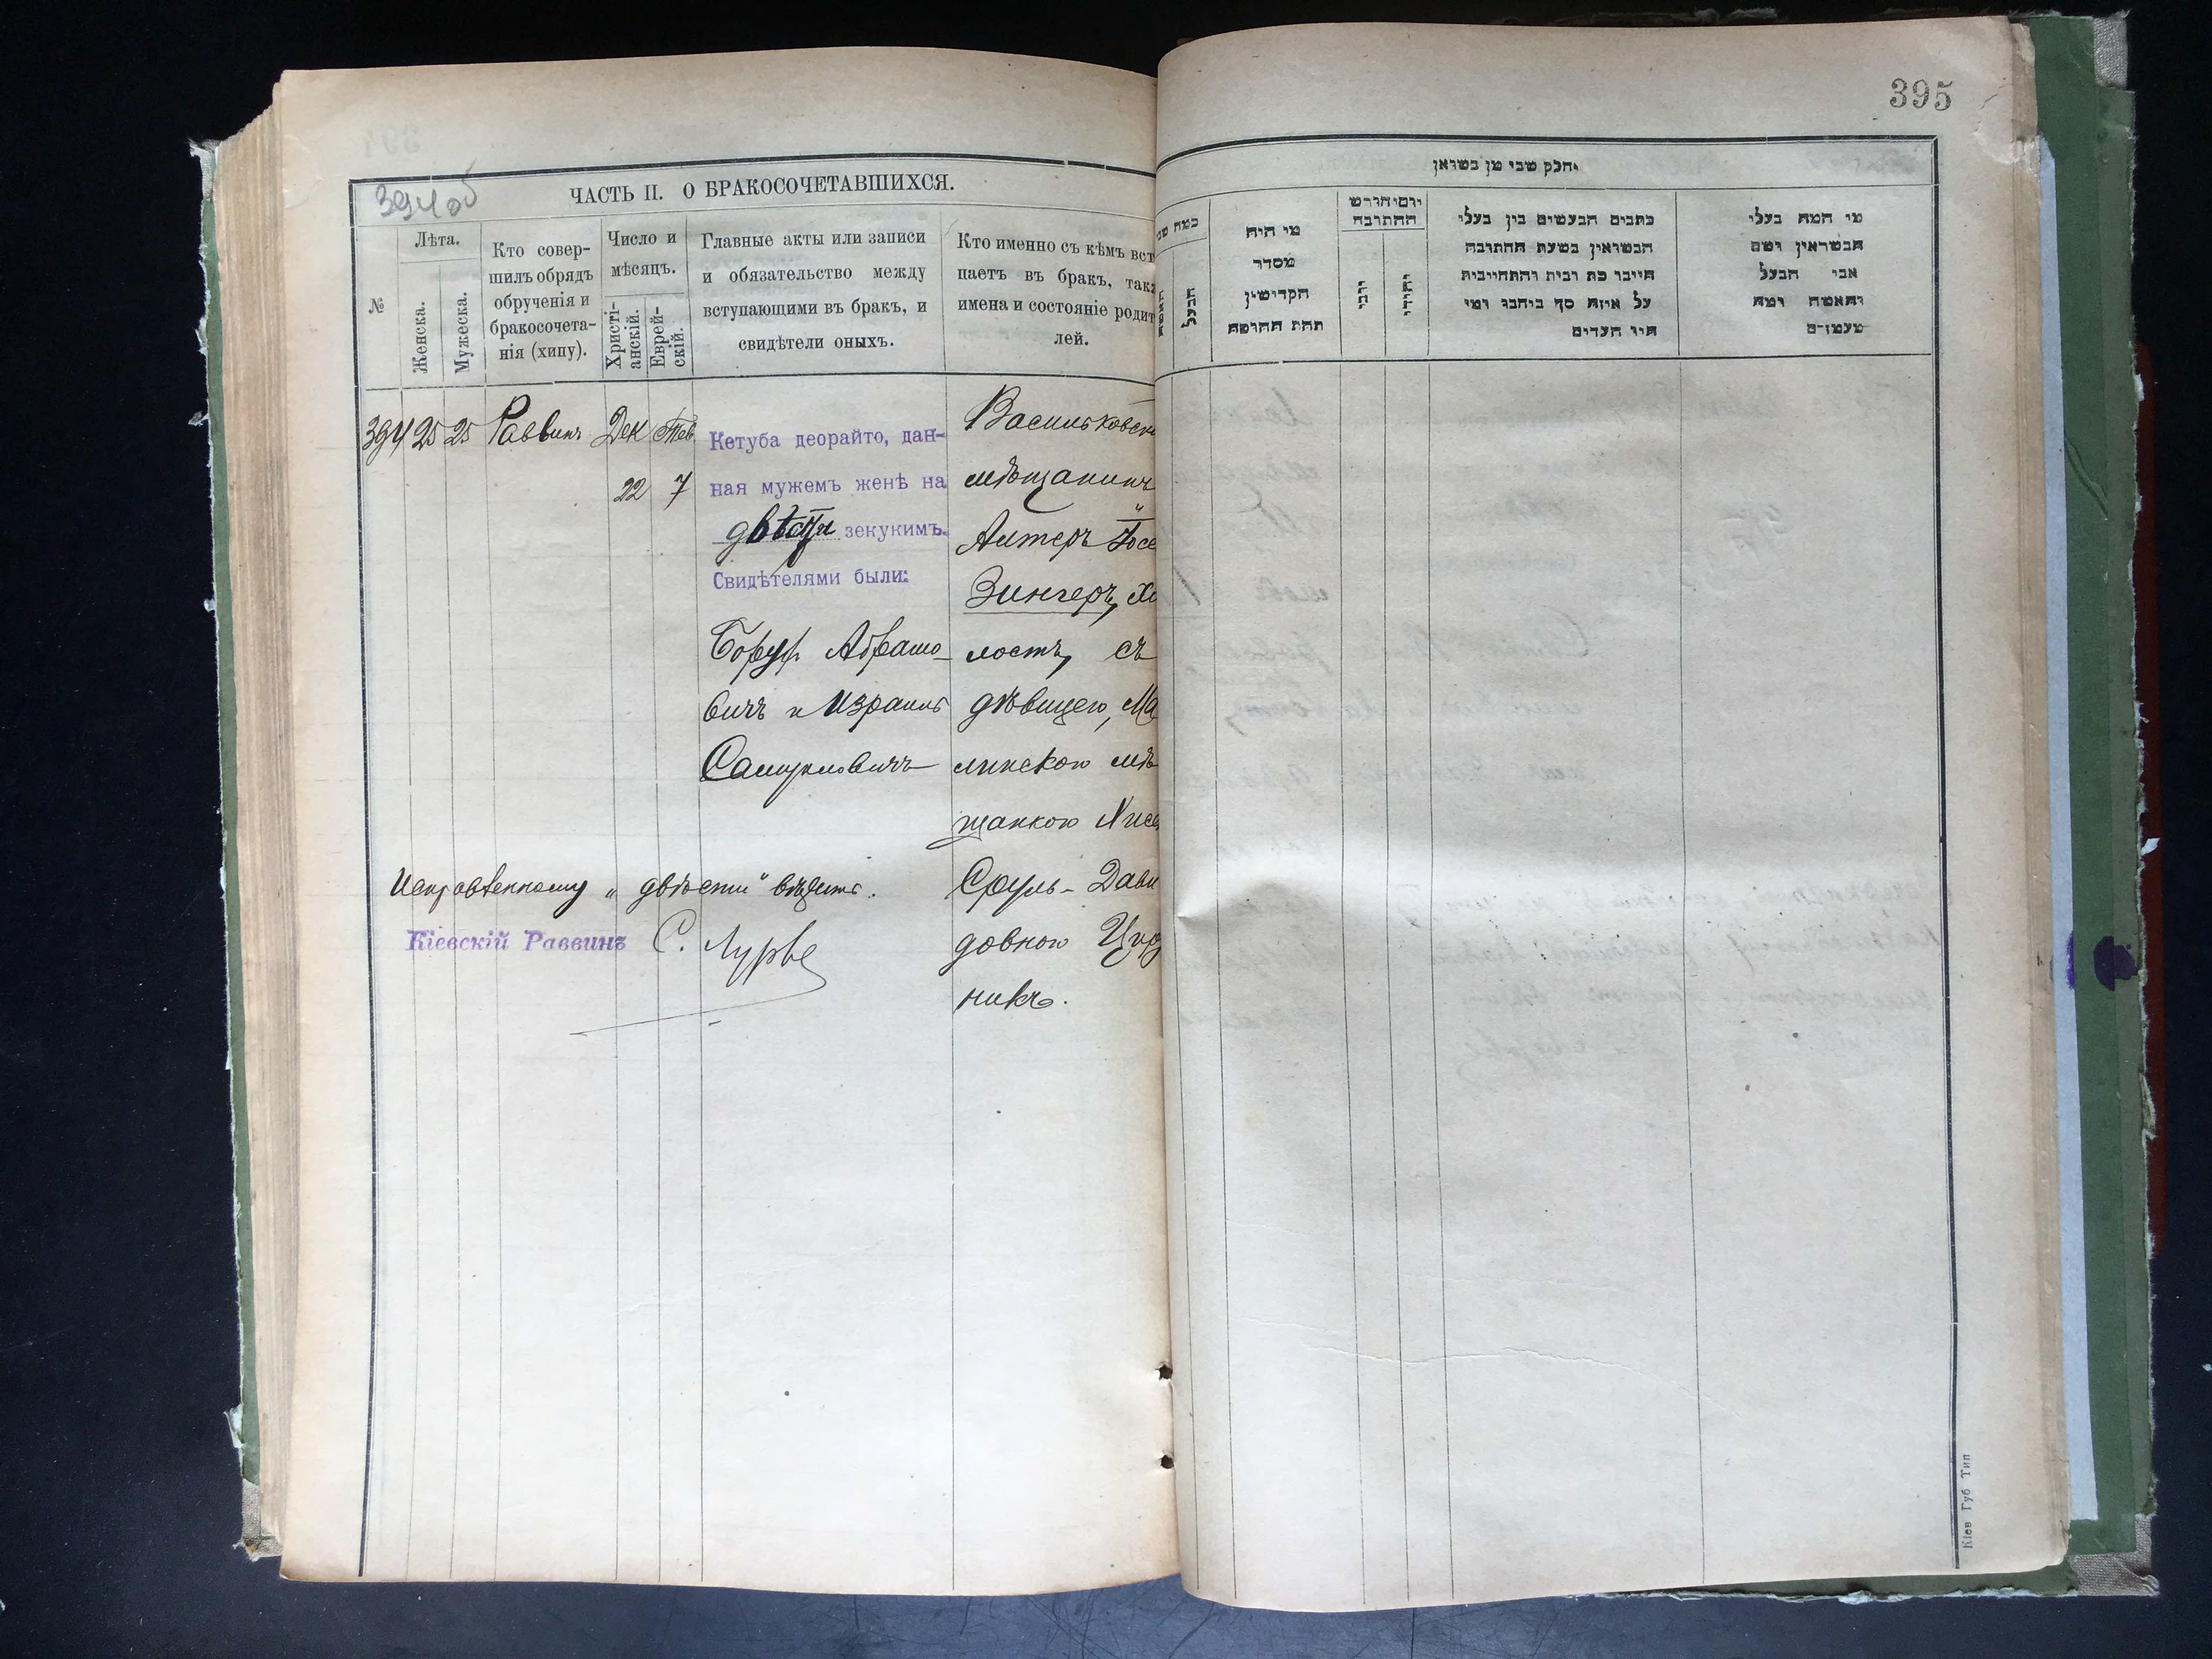 395
394 об
ЧАСТЬ II. О БРАКОСОЧЕТАВШИХСЯ.
№
Лѣта.
Женска.
Мужеска.
Кто совер-
шилъ обрядъ
обрученія и
бракосочета-
нія (хипу).
Число и
мѣсяцъ.
Христі-
анскій.
Еврей-
скій.
Главные акты или записи
и обязательство между
вступающими въ бракъ, и
свидѣтели оныхъ.
Кто именно съ кѣмъ вст
паетъ въ бракъ, так
имена и состояніе родит
лей.
394 25 25 Раввинъ Дек Тев
22 7
Кетуба деорайто, дан-
ная мужемъ женѣ на
двѣсти зекукимъ.
Свидѣтелями были:
Борух Абрамо-
вичъ и Израиль
Самуиловичъ
Васильковск
мѣщанинъ
Алтеръ Іосе
Зингеръ, хо
лостъ, съ
дѣвицею, Ма
линскою мѣ
щанкою
Сруль-Дави
довною
никъ.
Исправленному „двѣсти" вѣрить.
Кіевскій Раввинъ С. Лурье
יחלק שבי מן בשואן
במה שני
הבעל
מי היה
מסדר
הקדישין
תחת החופה
יום וחודש
החתובה
כתבים הנעשים בין בעלי
הנשואין בשעת החתובה
חייבו כת ובית והתחייבית
על איזה סך ביחבו ומי
היו העדים
מי המה בעלי
הנשואין ושם
אבי הבעל
והאשה ומה
מעמדם
Кіев Губ Тип